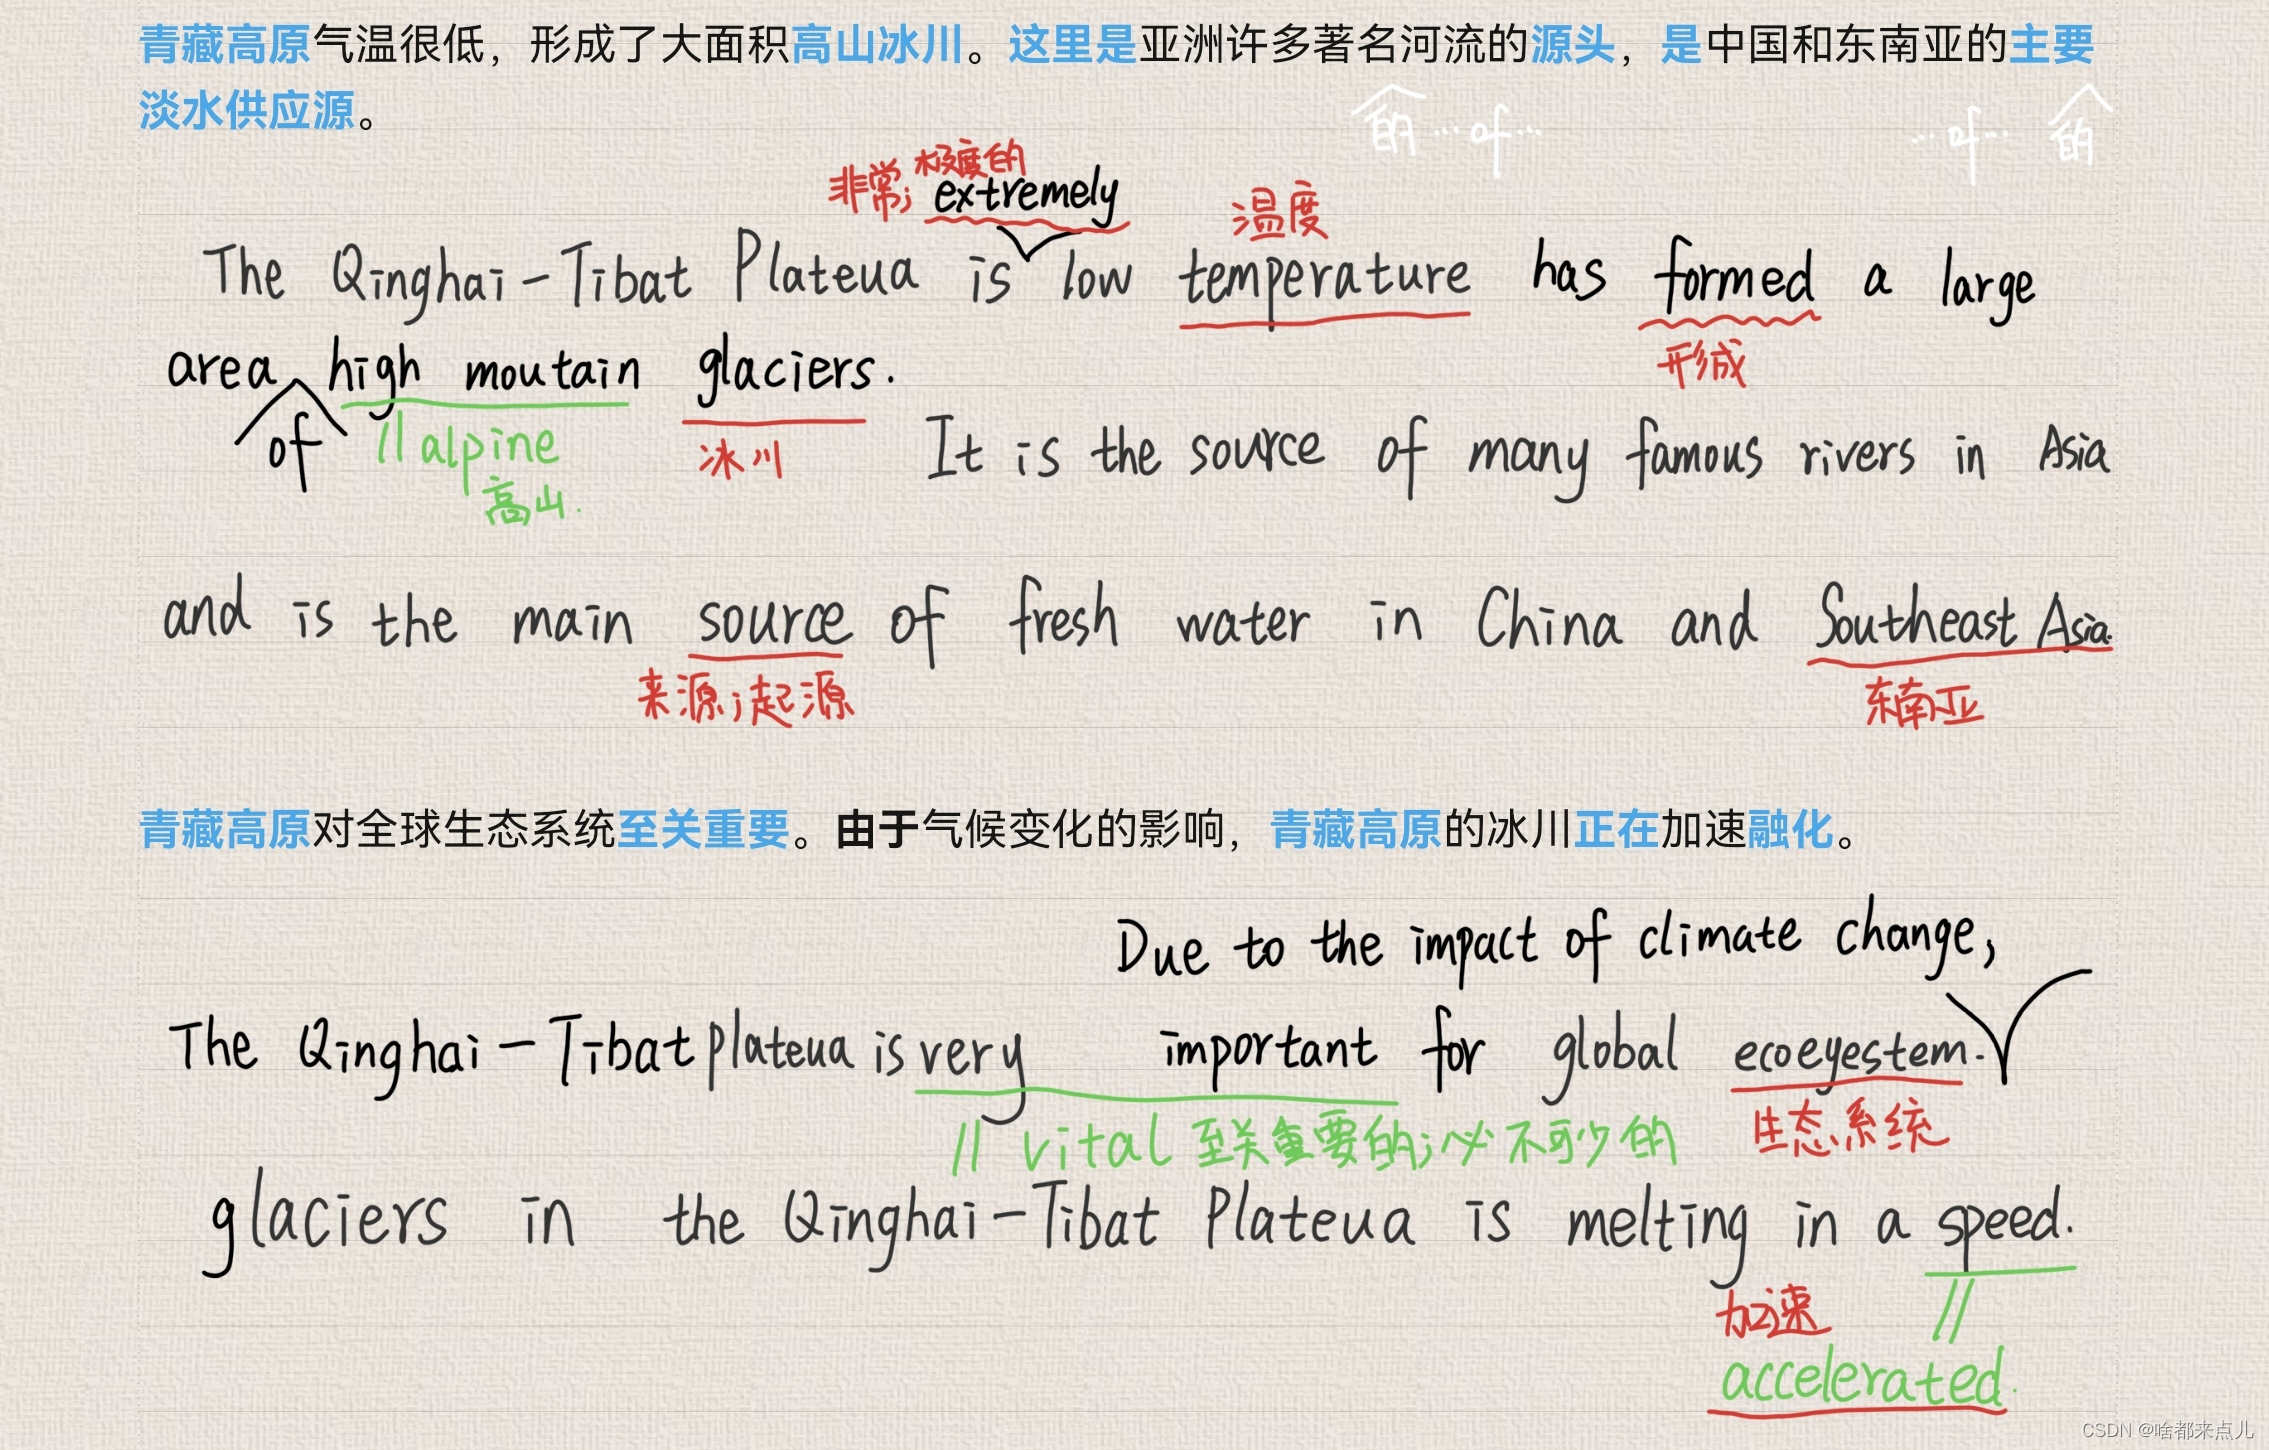 青藏高原气温很低，形成了大面积高山冰川。这里是亚洲许多著名河流的源头，是中国和东南亚的主要
淡水供应源。
的…of…
…of… 的
非常; 极度的
extremely
温度
The Qinghai-Tibat Plateua is low temperature has formed a large
形成
area high moutain glaciers.
of
// alpine
高山.
冰川
It is the source of many famous rivers in Asia
and is the main source of fresh water in China and Southeast Asia.
来源;起源
东南亚
青藏高原对全球生态系统至关重要。由于气候变化的影响，青藏高原的冰川正在加速融化。
Due to the impact of climate change,
The Qinghai-Tibat plateua is very important for global ecoeyestem.
// vital 至关重要的;必不可少的
生态系统
glaciers in the Qinghai-Tibat Plateua is melting in a speed.
加速
//
accelerated.
CSDN @啥都来点儿